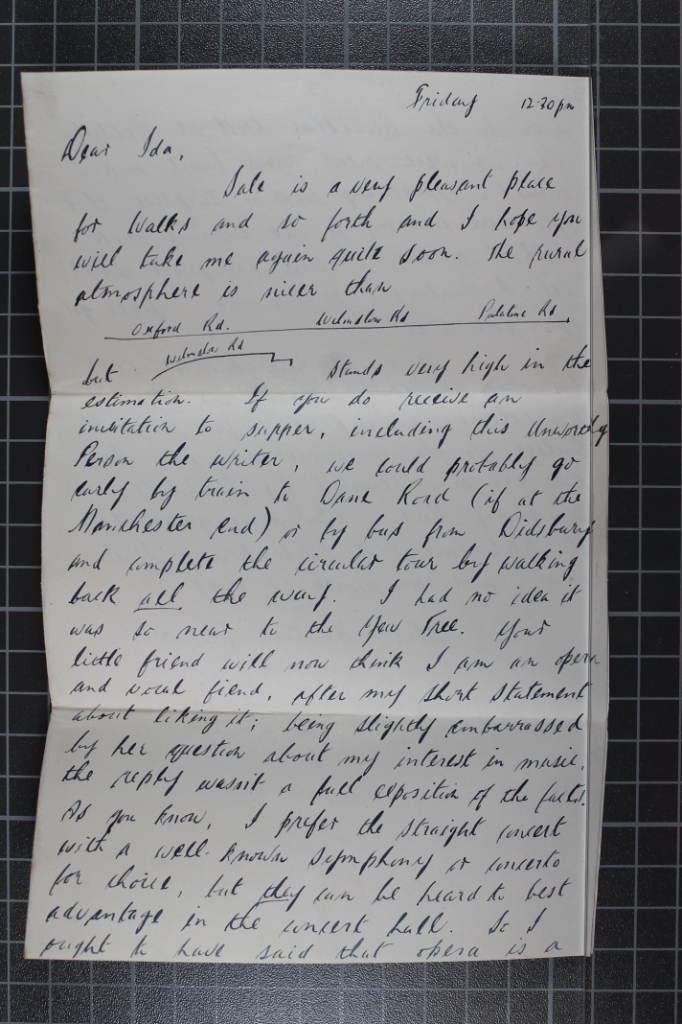 Friday 12.30pm
Dear Ida,
Sale is a very pleasant place
for walks and so forth and I hope you
will take me again quite soon. The rural
atmosphere is nicer than
Oxford Rd. Wilmslow Rd Palatine Rd
but Wilmslow Rd stands very high in the
estimation. If you do receive an
invitation to supper, including this Unworthy
Person the writer, we could probably go
early by train to Dane Road (if at the
Manchester end) or by bus from Didsbury
and complete the circular tour by walking
back all the way. I had no idea it
was so near to the Yew Tree. Your
little friend will now think I am an opera
and vocal fiend, after my short statement
about liking it; being slightly embarrassed
by her question about my interest in music,
the reply wasn't a full exposition of the facts.
As you know, I prefer the straight concert
with a well-known symphony or concerto
for choice, but they can be heard to best
advantage in the concert hall. So I
ought to have said that opera is a